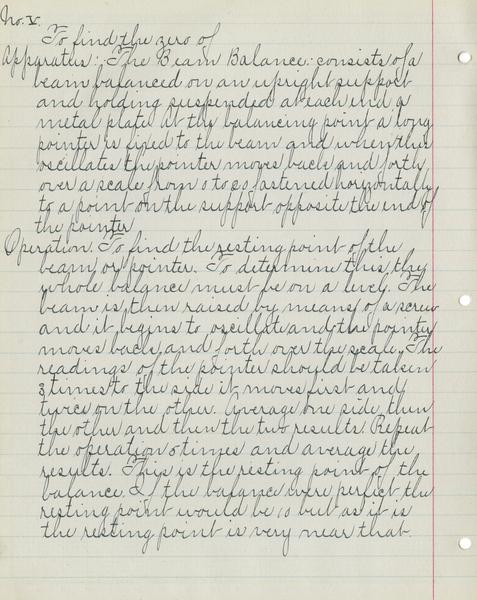 No. V.
To find the zero of
Apparatus: The Beam Balance: consists of a
beam balanced on an upright support
and holding suspended at each end a
metal plate at the balancing point a long
pointer is fixed to the beam and when this
oscillates the pointer moves back and forth
over a scale from 0 to 20 fastened horizontally
to a point on the support opposite the end of
the pointer
Operation. To find the resting point of the
beam or pointer. To determine this they
whole balance must be on a level. The
beam is then raised by means of a screw
and it begins to oscillate and the pointer
moves back and forth over the scale. The
readings of the pointer should be taken
3 times to the side it moves first and
twice on the other. Average one side, then
the other and then the two results. Repeat
the operation 5 times and average the
results. This is the resting point of the
balance. If the balance were perfect the
resting point would be 10 but as it is
the resting point is very near that.